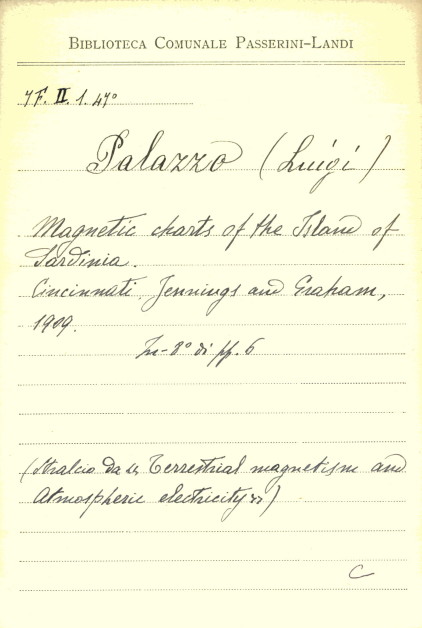 BIBLIOTECA COMUNALE PASSERINI-LANDI
7 F. II. 1. 47°
Palazzo (Luigi)
Magnetic charts of the Island of
Sardinia.
Cincinnati, Jennings and Graham,
1909.
In-8° di pp. 6
(Stralcio da « Terrestrial magnetism and
Atmospheric electricity »)
C